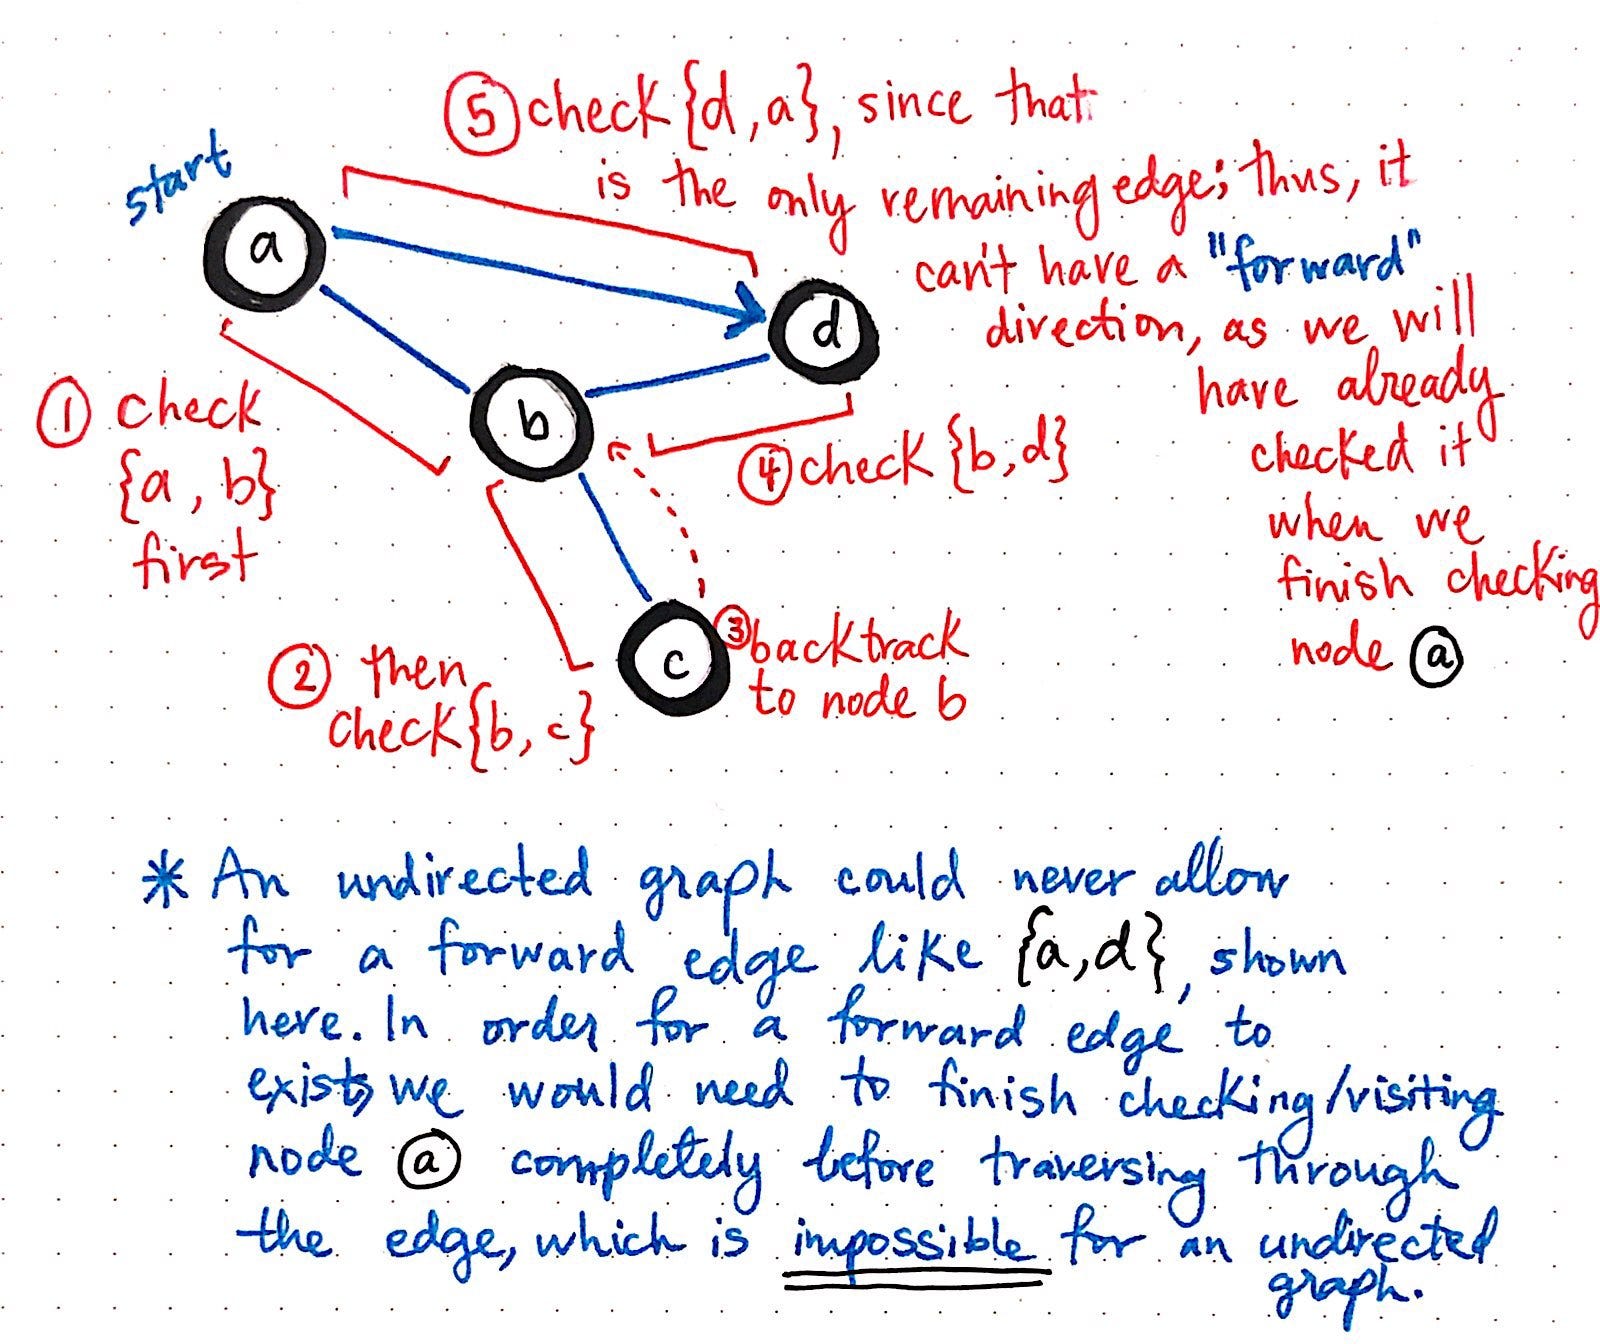 ⑤ check {d, a}, since that
is the only remaining edge; thus, it
can't have a "forward"
direction, as we will
have already
checked it
when we
finish checking
node ⓐ
start
a
d
b
c
① check
{a, b}
first
④ check {b, d}
② then
check {b, c}
③ backtrack
to node b
* An undirected graph could never allow
for a forward edge like {a, d}, shown
here. In order for a forward edge to
exist, we would need to finish checking/visiting
node ⓐ completely before traversing through
the edge, which is impossible for an undirected
graph.